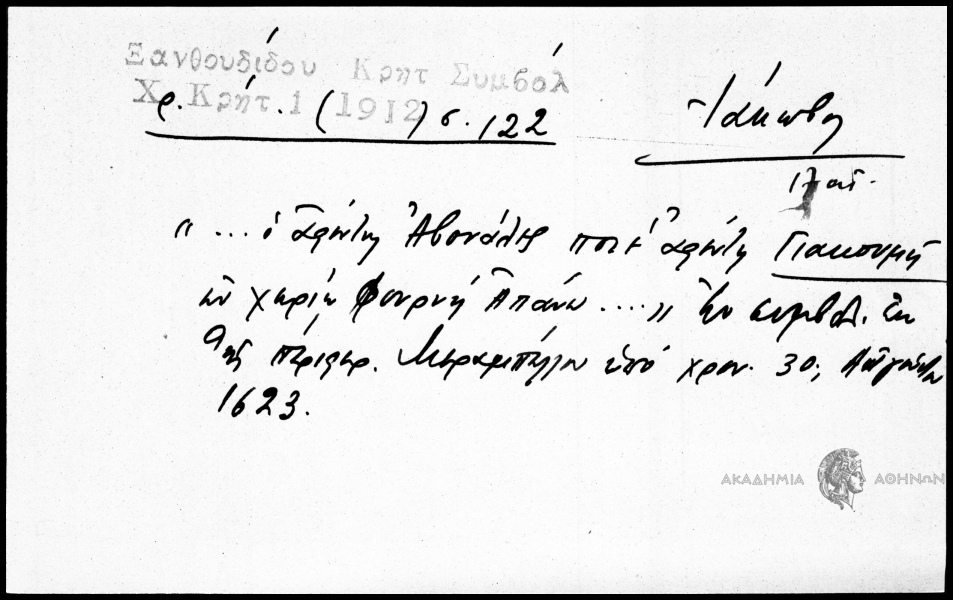 Ξανθουδίδου Κρητ Συμβόλ
Χρ. Κρήτ. 1 (1912) σ. 122
Ἰάκωβος
17 αἰ.
"... ὁ ἀφέντης Ἀβονάλης ποτὲ ἀφέντη Γιακουμῆ
χωριὸ Φουρνὴ Ἀπάνω ...." Ἐν συμβολ. ἐκ
τῆς περιφερ. Μεραμπέλλου ὑπὸ χρον. 30, Αὐγούστου
1623.
ΑΚΑΔΗΜΙΑ ΑΘΗΝΩΝ